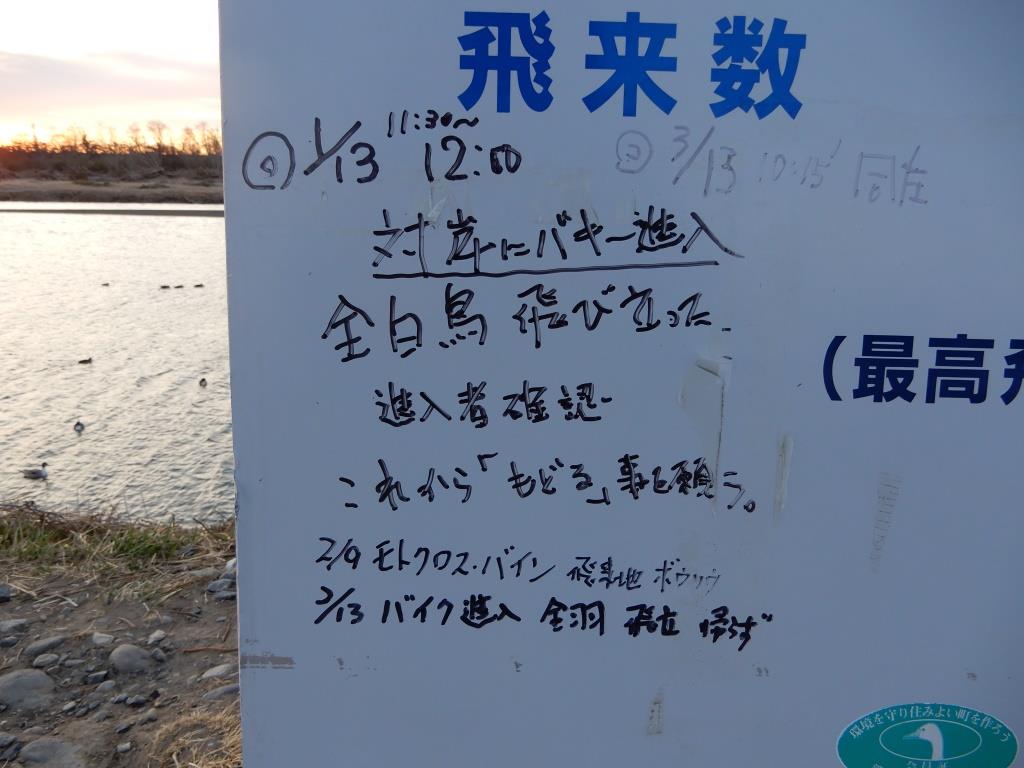 飛来数
11:30~
1/13 12:00
3/13 10:15' 同左
対岸にバギー進入
全白鳥 飛び立った
(最高飛
進入者確認
これから「もどる」事を願う。
2/9 モトクロス・バイン 飛来地 ボウソウ
2/13 バイク進入 全羽 飛立 帰らず
環境を守り住みよい町を作ろう